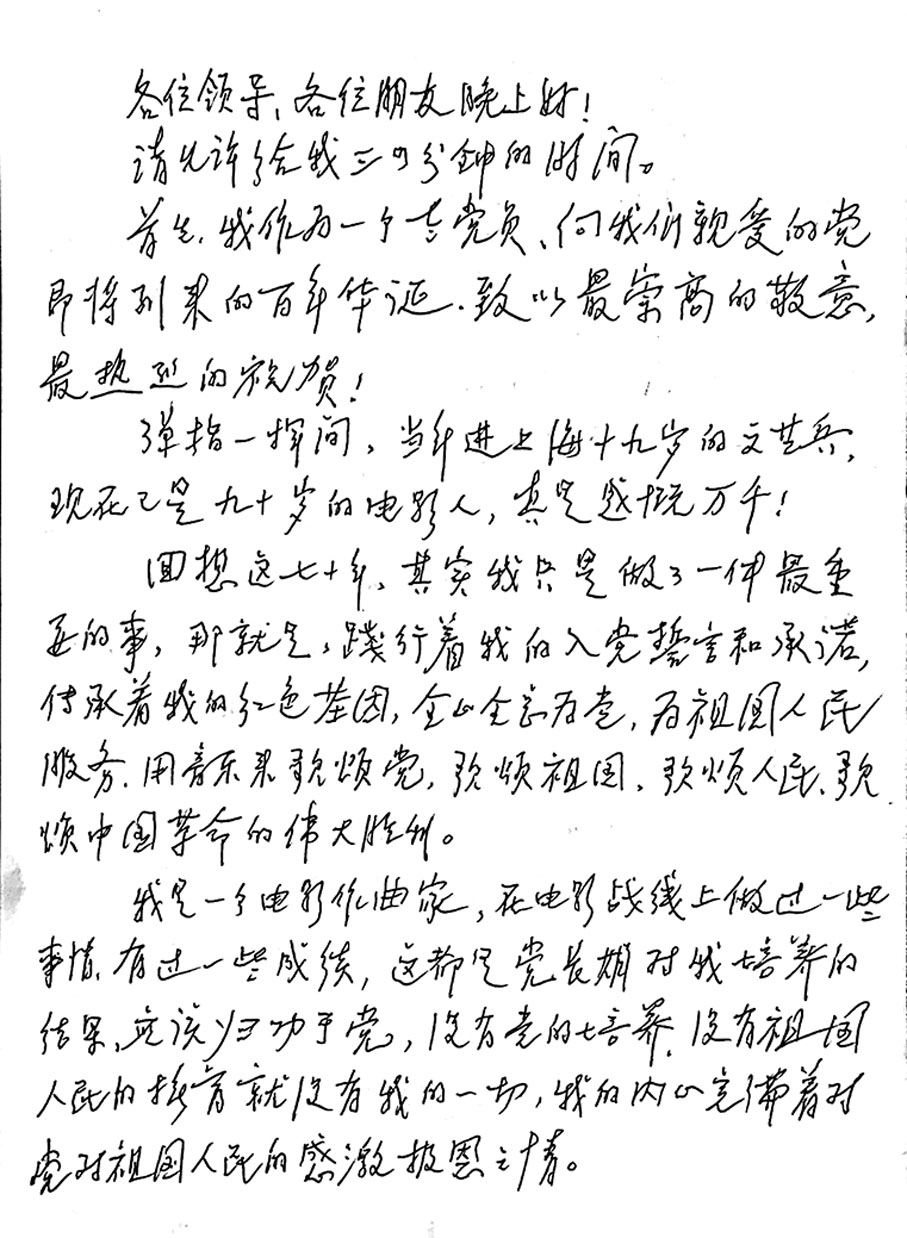 各位领导、各位朋友晚上好!
请允许给我三四分钟的时间。
首先,我作为一个老党员、向我们亲爱的党
即将到来的百年华诞.致以最崇高的敬意,
最热烈的祝贺!
弹指一挥间,当年进上海十九岁的文艺兵,
现在已是九十岁的电影人,真是感慨万千!
回想这七十年,其实我只是做了一件最重
要的事,那就是,践行着我的入党誓言和承诺,
传承着我的红色基因,全心全意为党,为祖国人民
服务.用音乐来歌颂党,歌颂祖国、歌颂人民、歌
颂中国革命的伟大胜利。
我是一个电影作曲家,在电影战线上做过一些
事情,有过一些成绩,这都是党长期对我培养的
结果,应该归功于党,没有党的培养,没有祖国
人民的抚育就没有我的一切,我的内心充满着对
党对祖国人民的感激报恩之情。